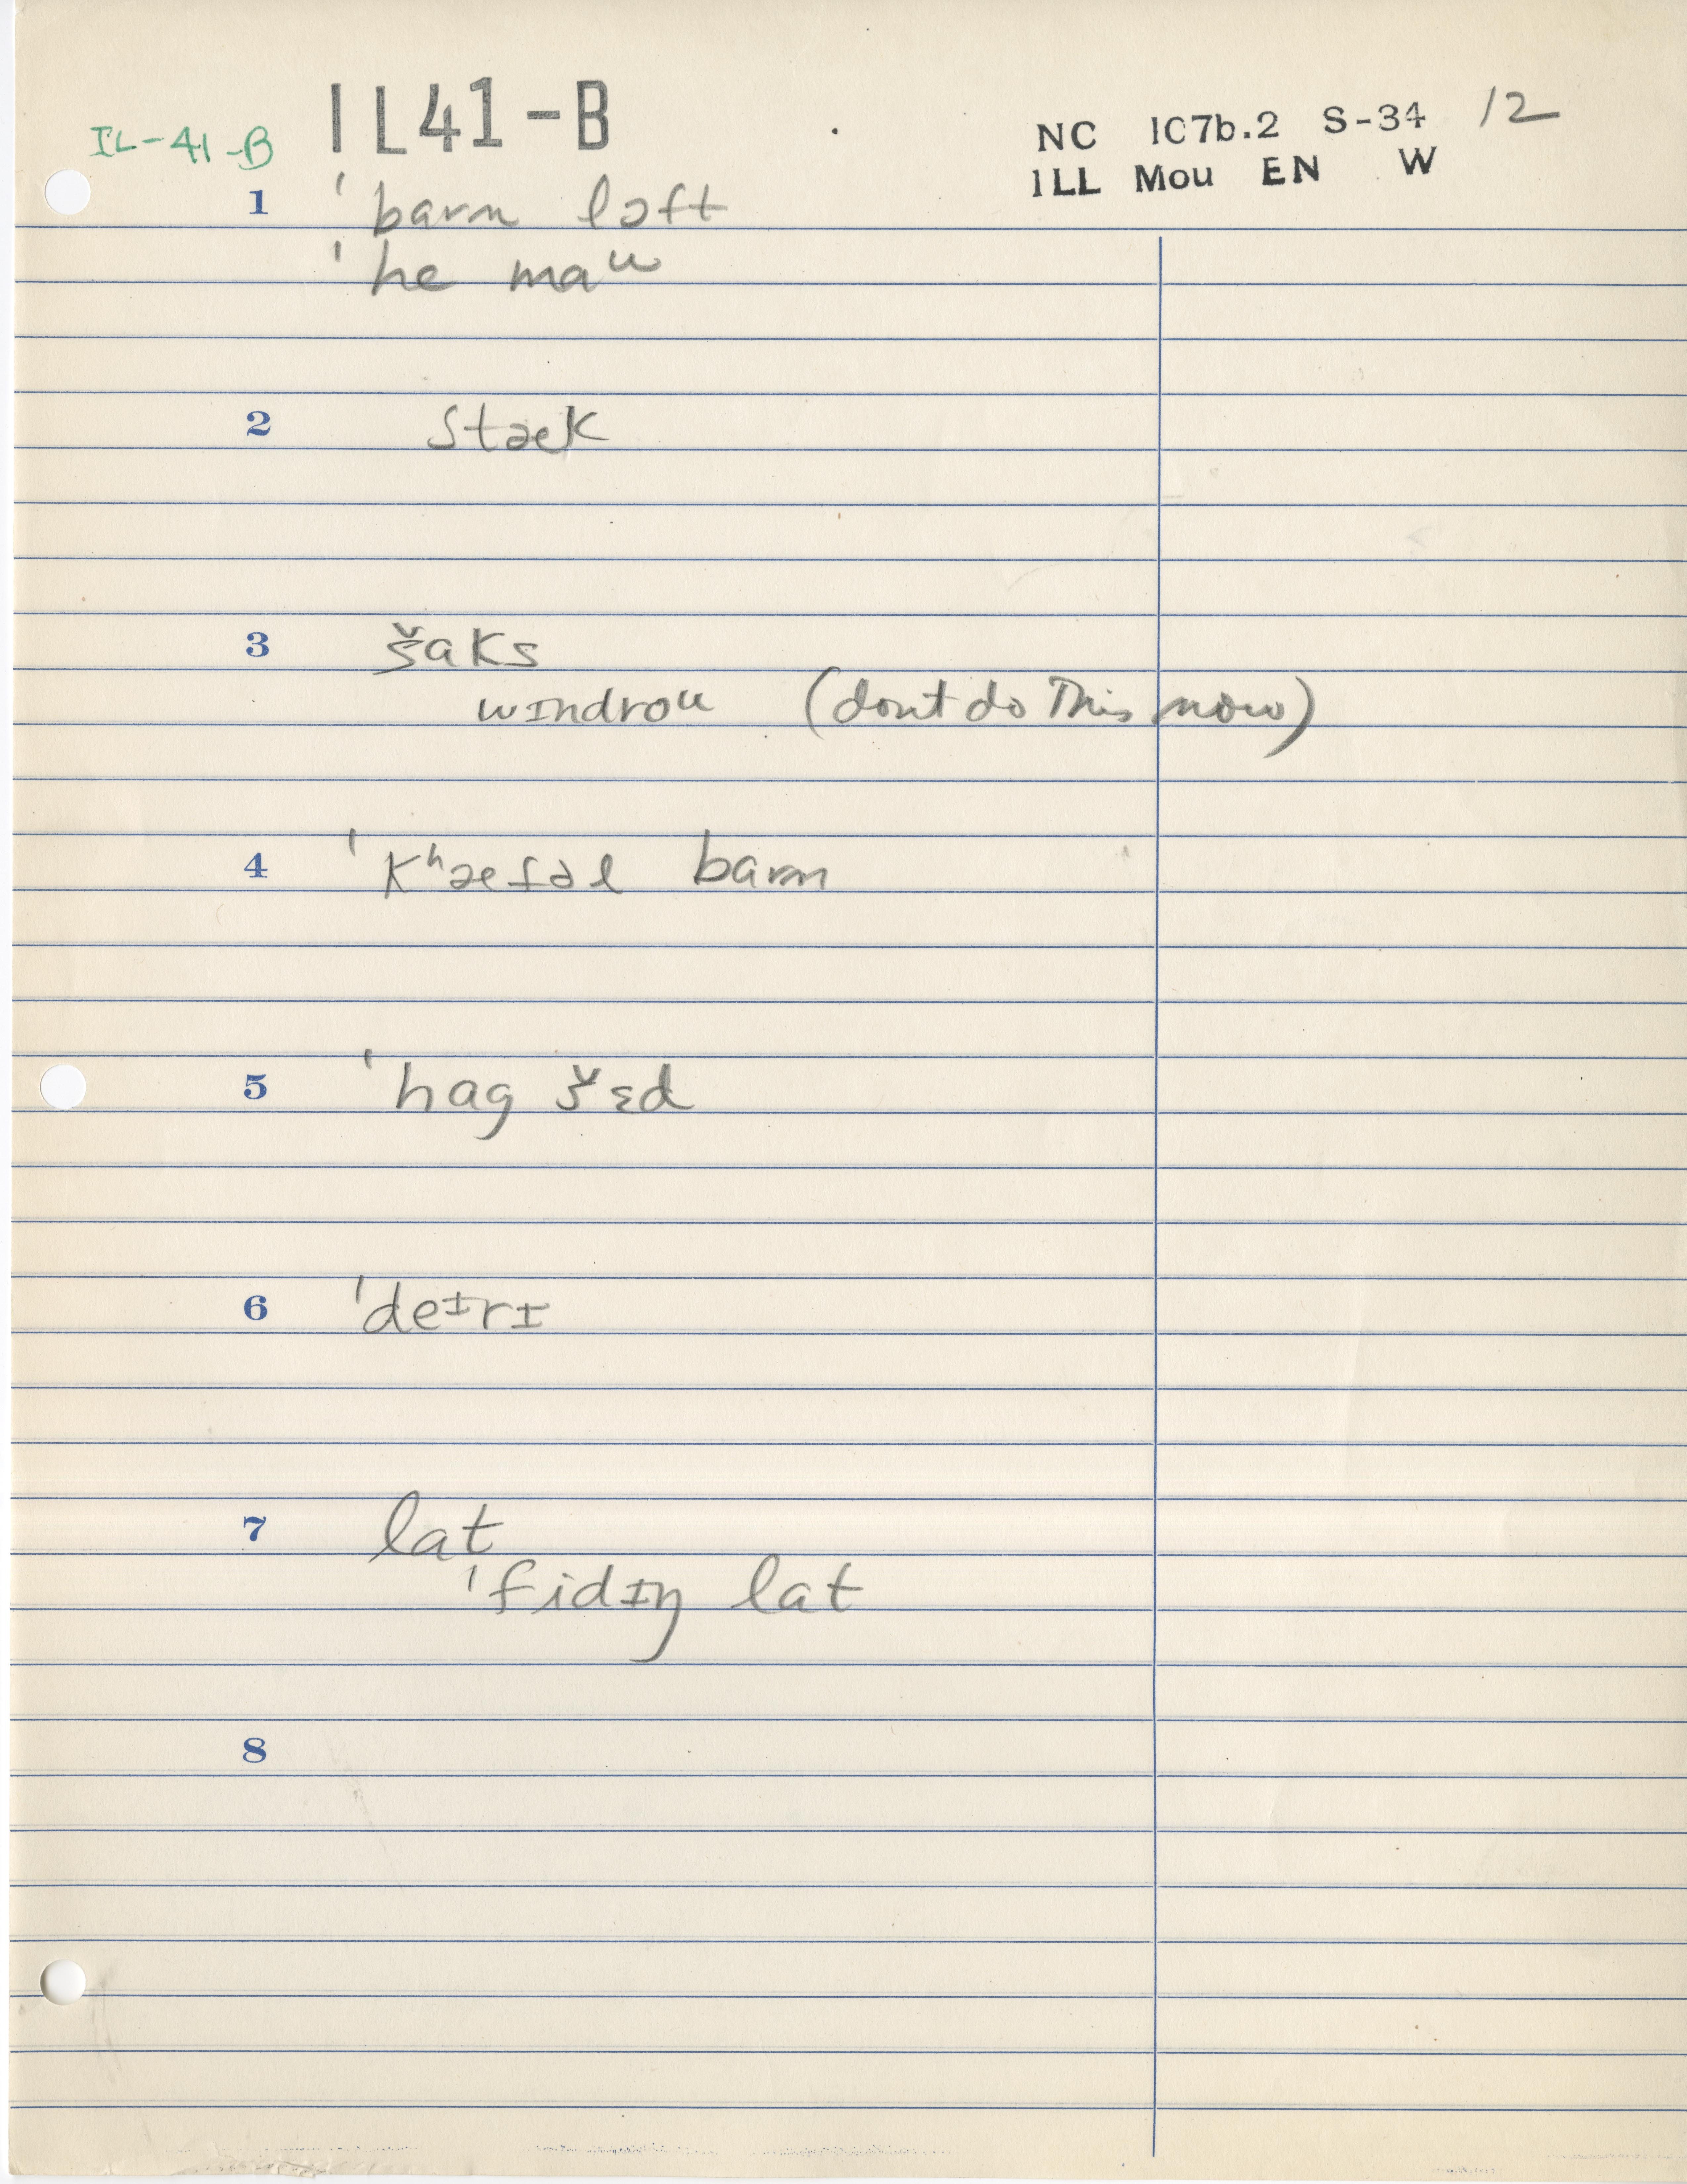 IL-41-B IL41-B NC 107b.2 S-34 12
ILL Mou EN W
1 ˈbarn lɔft
ˈhe maᵘ
2 stæk
3 šaks
wɪndroᵘ (dont do This now)
4 ˈkʰæfəl barn
5 ˈhag šɛd
6 ˈdeɪrɪ
7 lat
ˈfidɪŋ lat
8